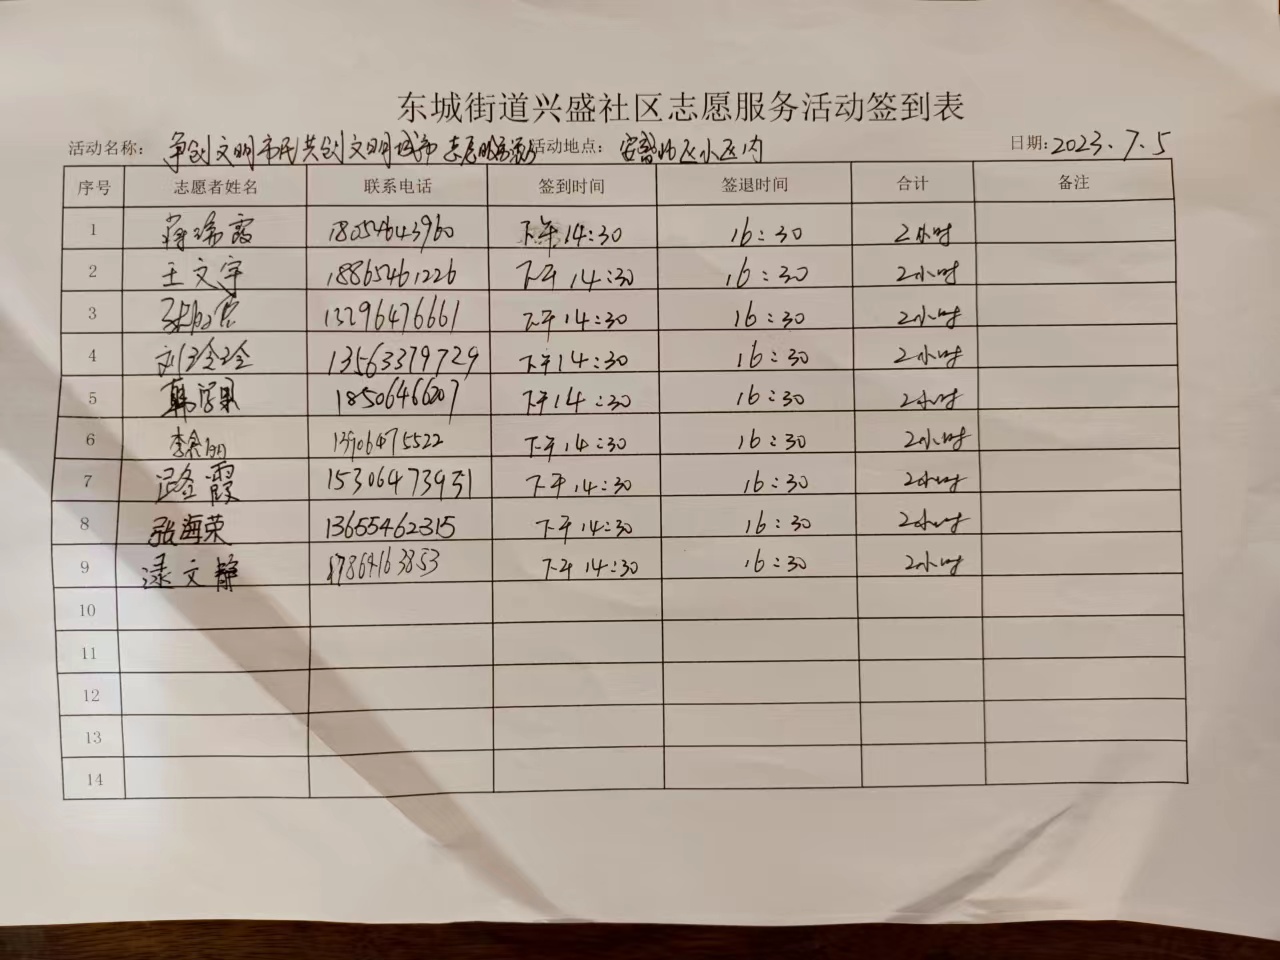 东城街道兴盛社区志愿服务活动签到表
活动名称： 争创文明市民共创文明城市 志愿服务活动 活动地点： 安 小区内 日期: 2023.7.5
序号 志愿者姓名 联系电话 签到时间 签退时间 合计 备注
1 蒋瑞霞 18054643960 下午 14:30 16:30 2小时
2 王文宇 18865461226 下午 14:30 16:30 2小时
3 13296476661 下午 14:30 16:30 2小时
4 刘玲玲 13563379729 下午 14:30 16:30 2小时
5 韩 1850646607 下午 14:30 16:30 2小时
6 李 13906475522 下午 14:30 16:30 2小时
7 路霞 15306473951 下午 14:30 16:30 2小时
8 张海荣 13655462315 下午 14:30 16:30 2小时
9 文静 17864163853 下午 14:30 16:30 2小时
10
11
12
13
14